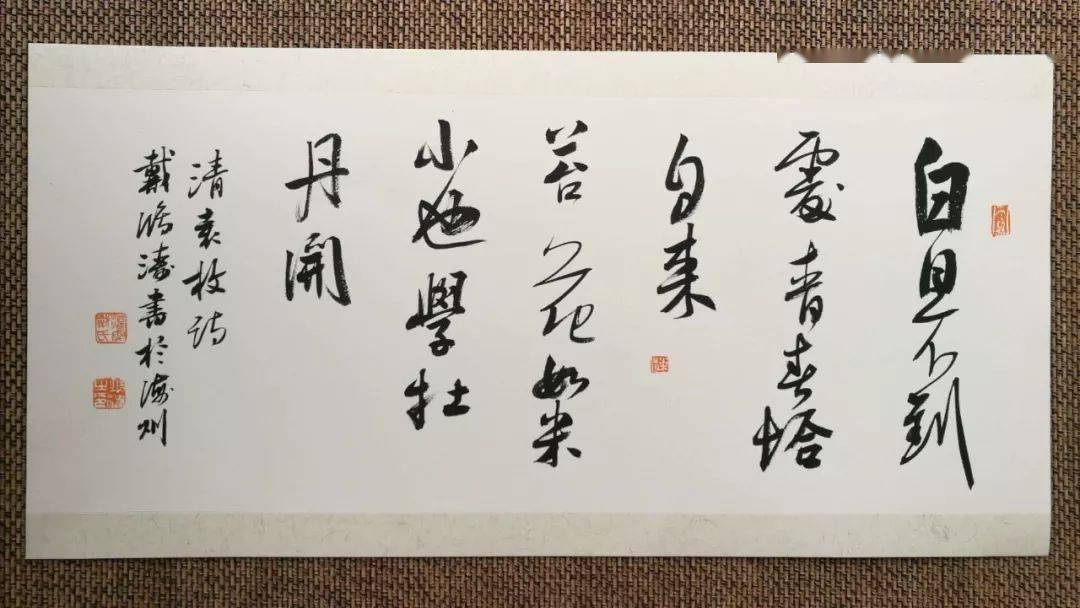 白日不到
處青春恰
自来
苔花如米
小也學牡
丹開
清袁枚诗
戴鴻濤書於海州